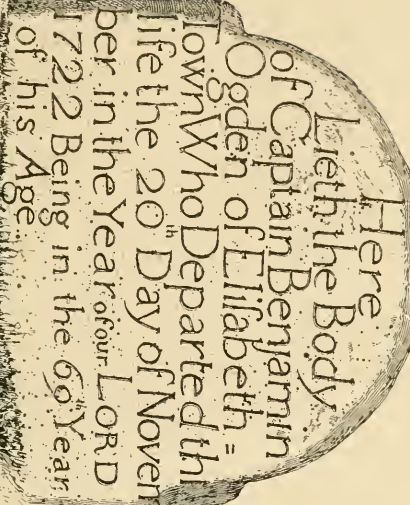 Here
Lieth the Body
of Captain Benjamin
Ogden of Eliſabeth =
Town Who Departed thi
life the 20th Day of Novem
ber in the Year of our LORD
1722 Being in the 69 Year
of his Age